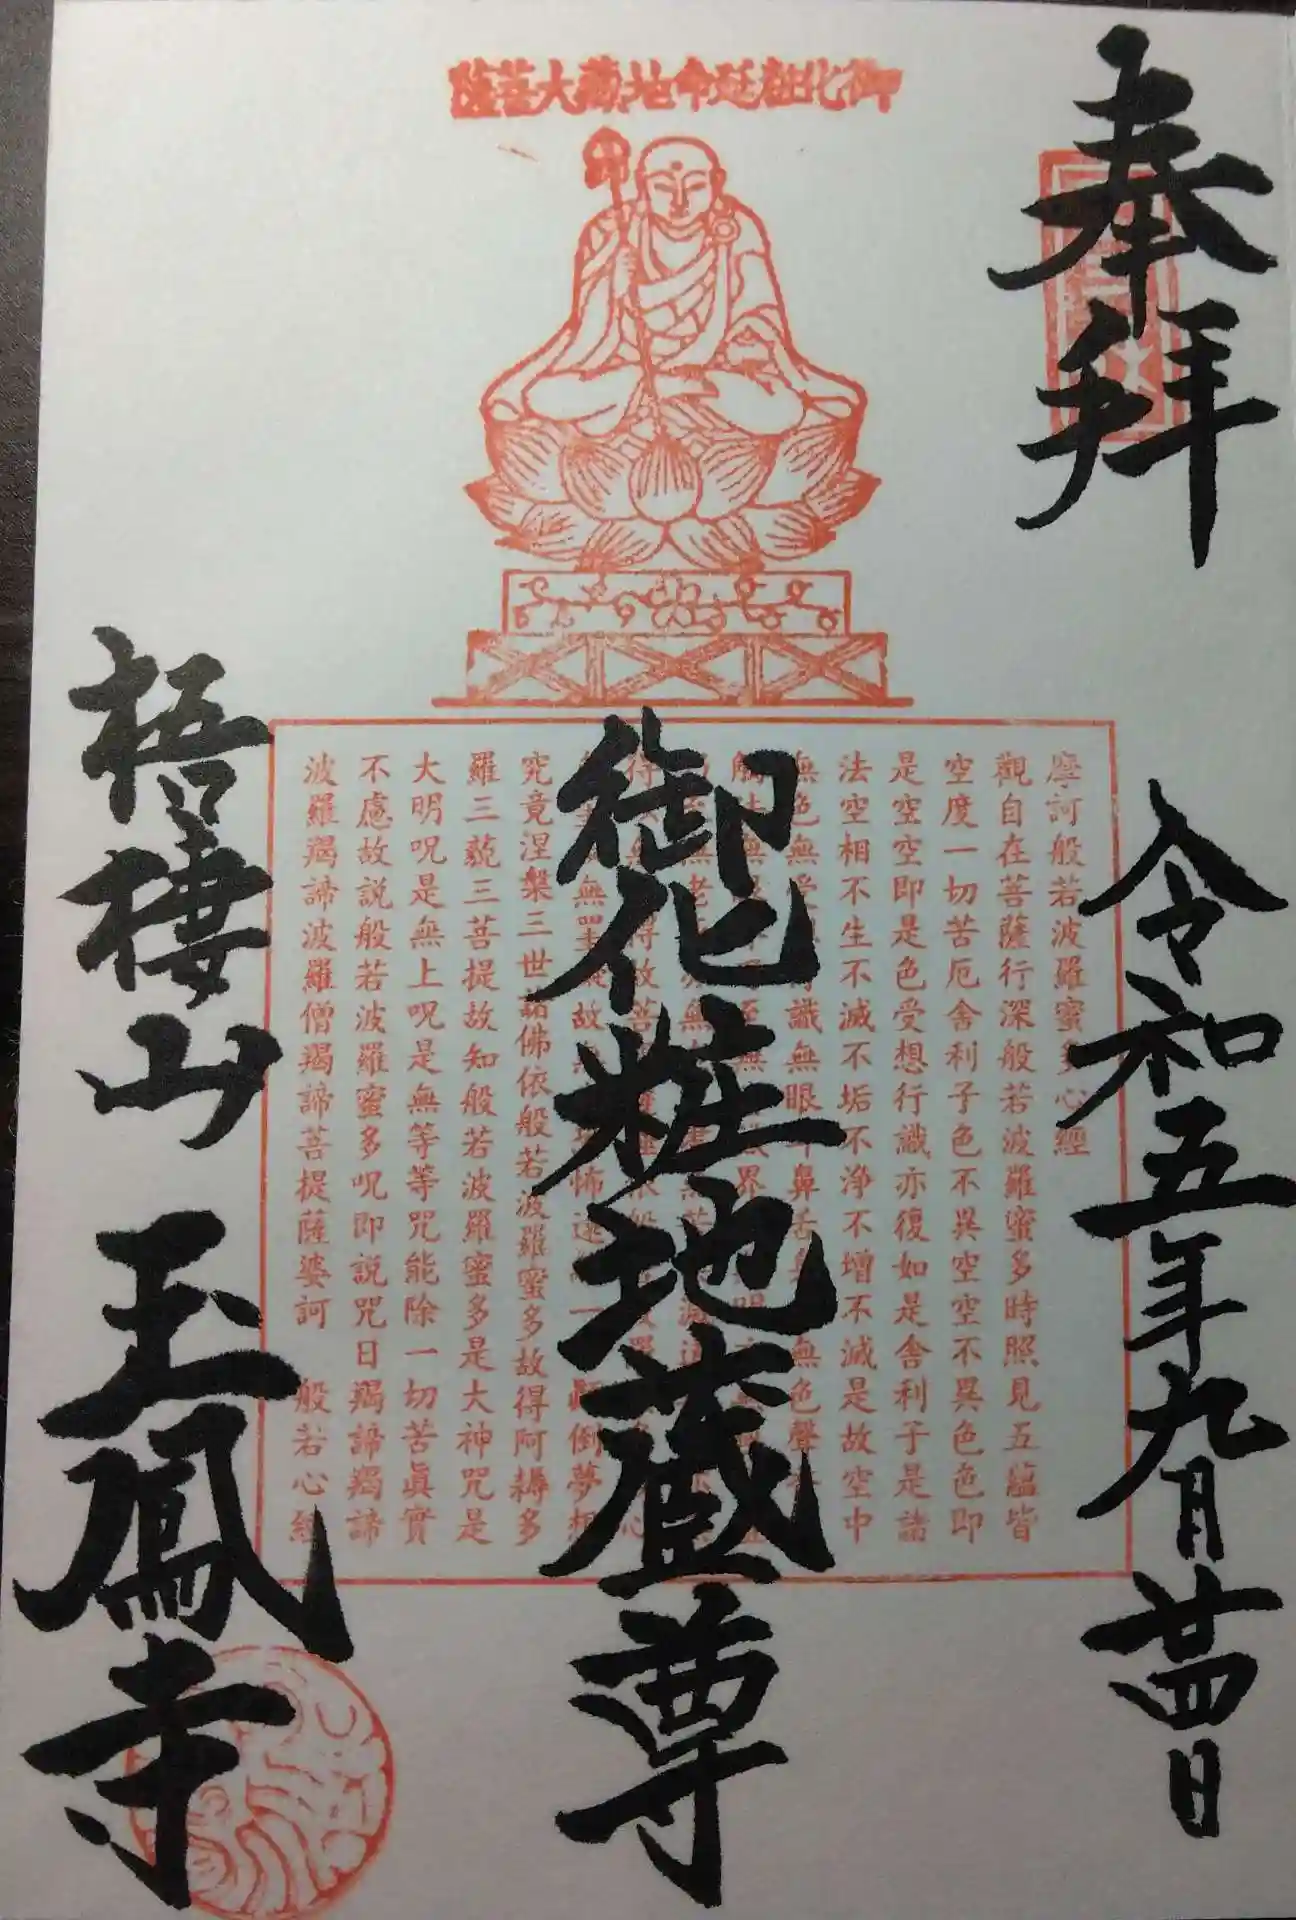 奉拝
令和五年九月廿四日
御化粧延命地蔵大菩薩
御化粧地蔵尊
梧棲山 玉鳳寺
摩訶般若波羅蜜多心經
觀自在菩薩行深般若波羅蜜多時照見五蘊皆
空度一切苦厄舎利子色不異空空不異色色即
是空空即是色受想行識亦復如是舎利子是諸
法空相不生不滅不垢不浄不増不滅是故空中
究竟涅槃三世諸佛依般若波羅蜜多故得阿耨多
羅三藐三菩提故知般若波羅蜜多是大神咒是
大明呪是無上呪是無等等咒能除一切苦眞實
不虚故説般若波羅蜜多呪即説咒曰羯諦羯諦
波羅羯諦波羅僧羯諦菩提薩婆訶 般若心經